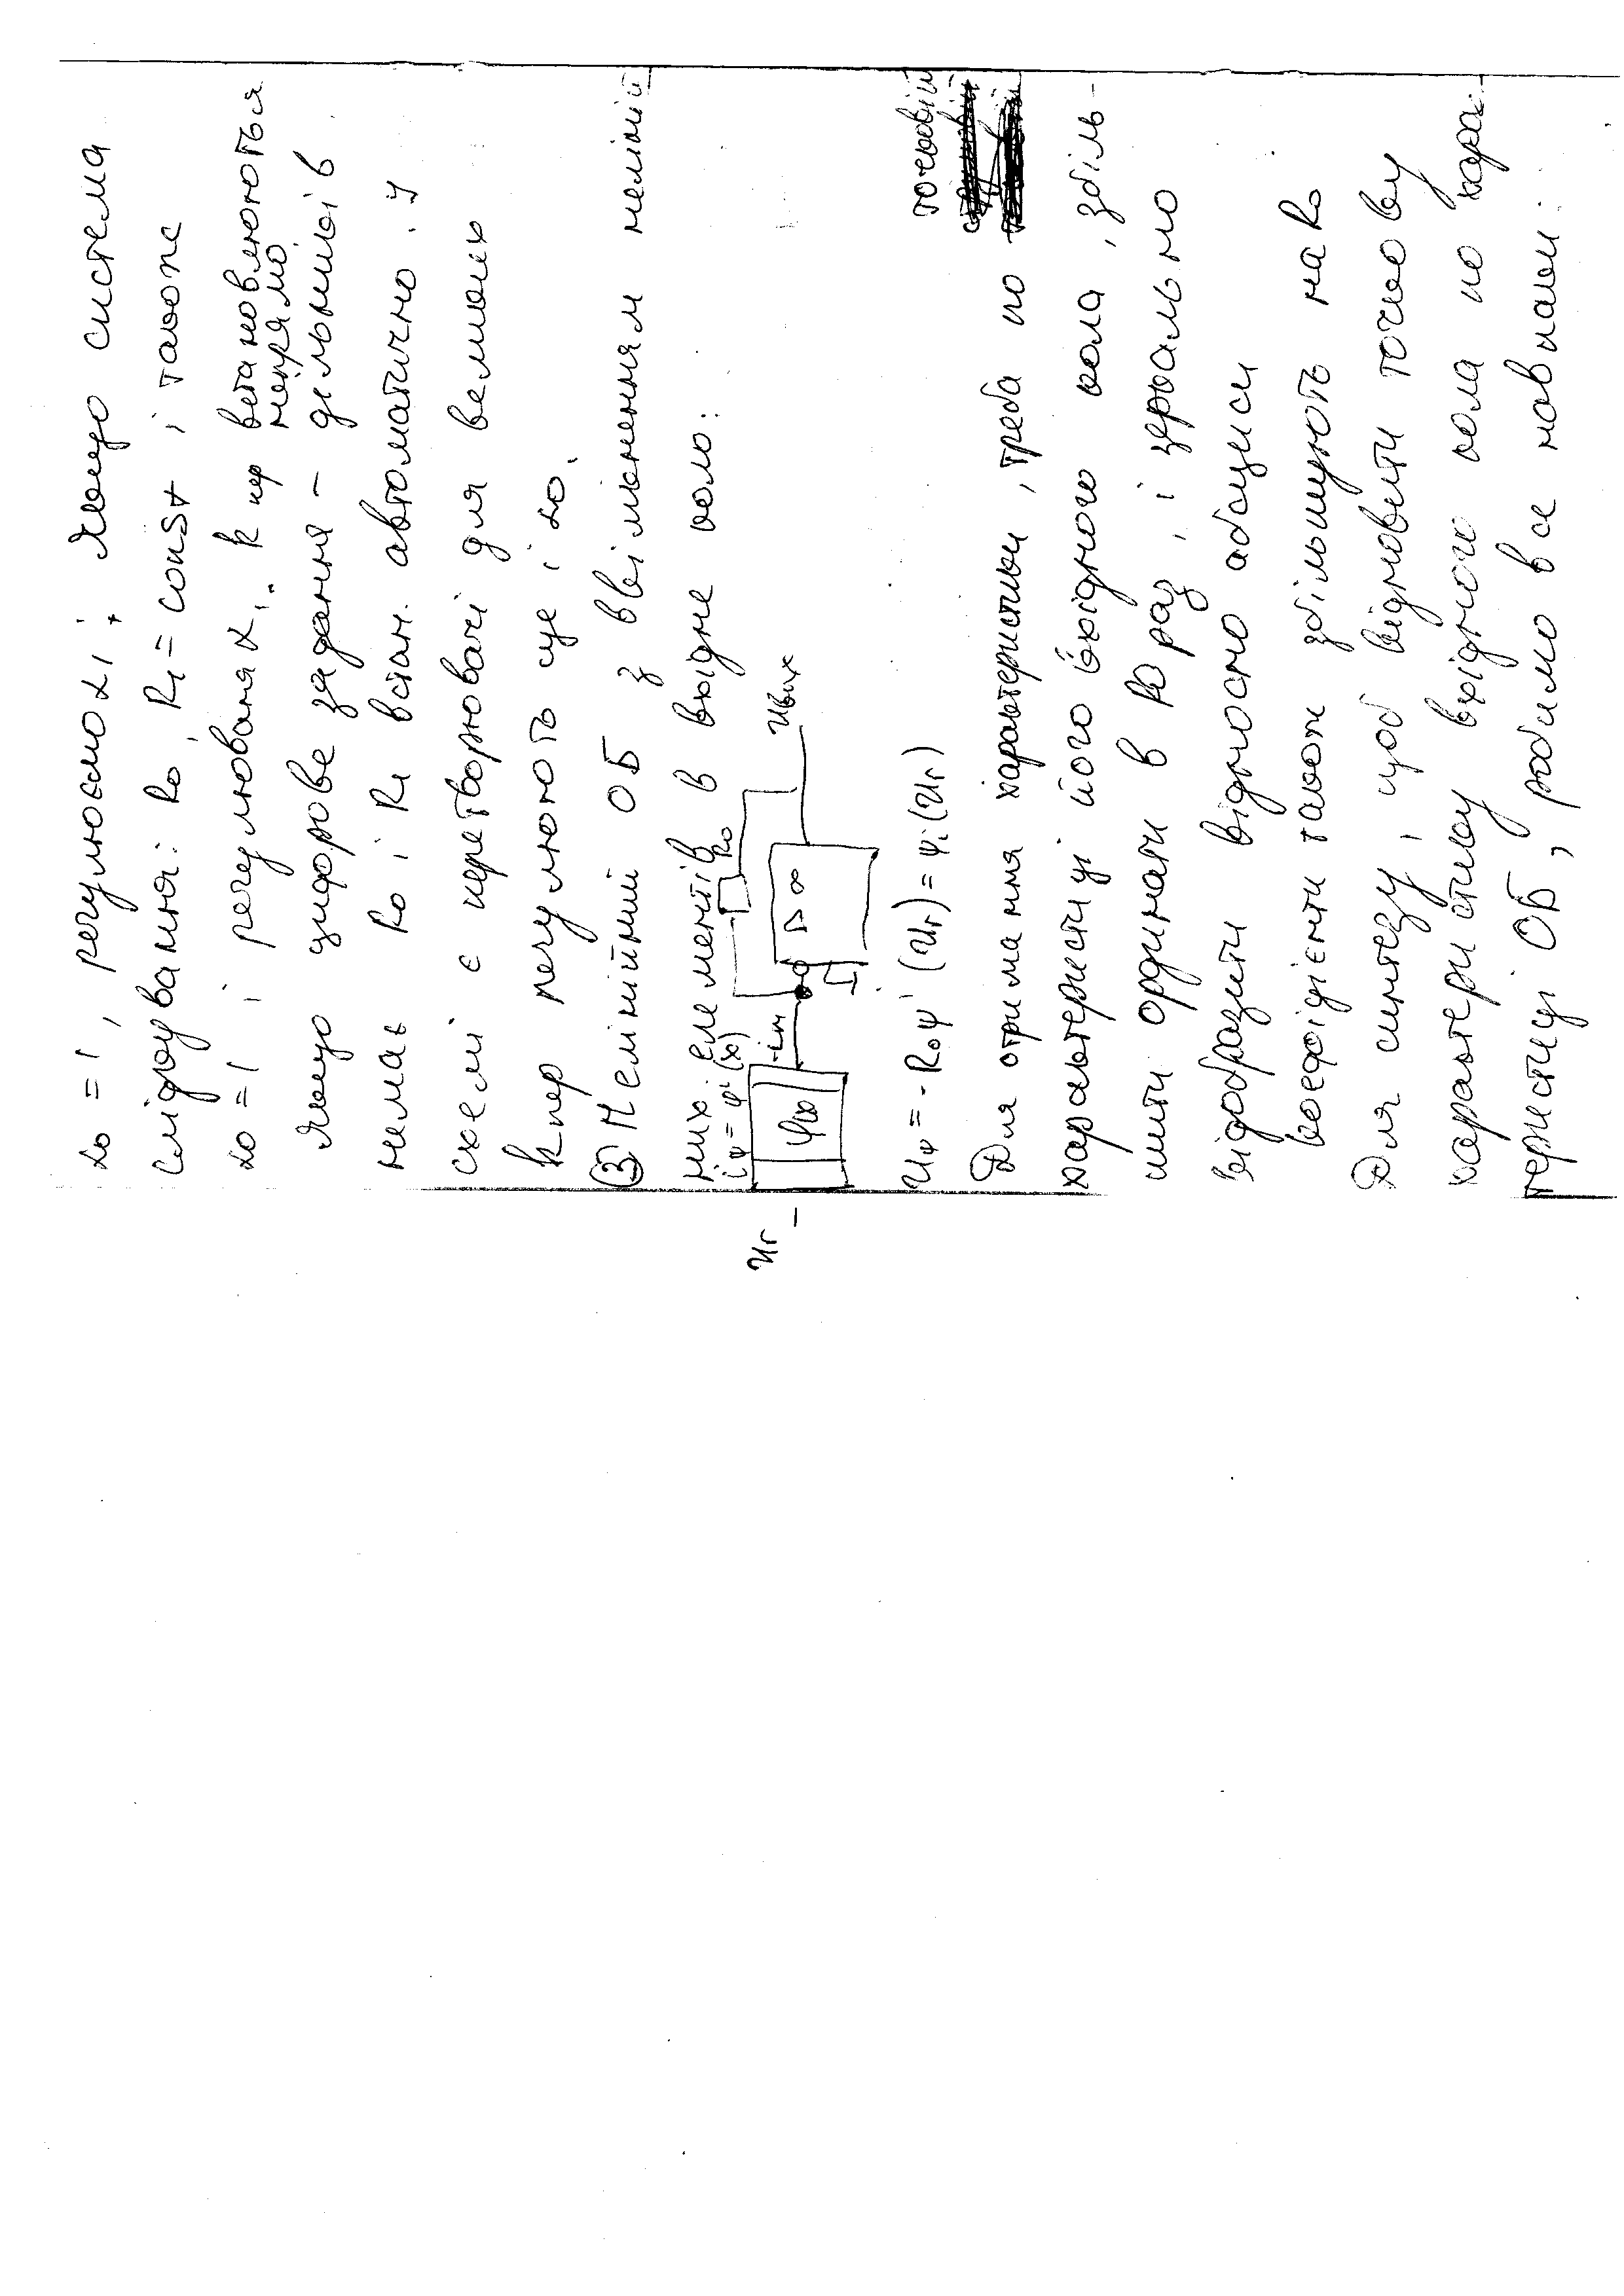 α₀ = 1, регулюємо αi; Якщо система
слідкування: R₀, R₁ = const і також
α₀ = 1 і регулювання αi. k пер встановлюються
непрямо
Якщо цифрове задання – дільників
немає R₀ і R₁ встан. автоматично. У
схемі є перетворювачі для великих
k пер регулюють ще і α₀.
③ Нелінійний ОБ з ввімкненням неліній
них елементів в вхідне коло:
iφ = φi(x)
R₀
Uг
φ(x)
iвх
▷ ∞
Uвих
Uφ = - R₀ φ' (Uг) = φi(Uг)
Для отримання характеристики, треба по точковій
характеристиці його вхідного кола, збіль-
шити ординати в R₀ раз, і зеркально
відобразити відносно абциси
коефіцієнти також збільшують на R₀
Для синтезу, щоб відновити точкову
характеристику вхідного кола по хара-
теристиці ОБ, робимо все навпаки: